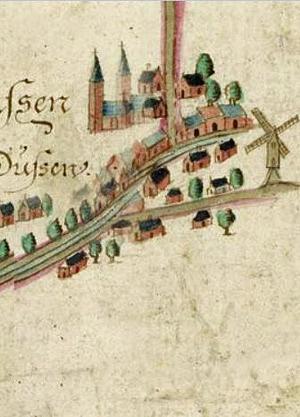 ssen
Düssen.